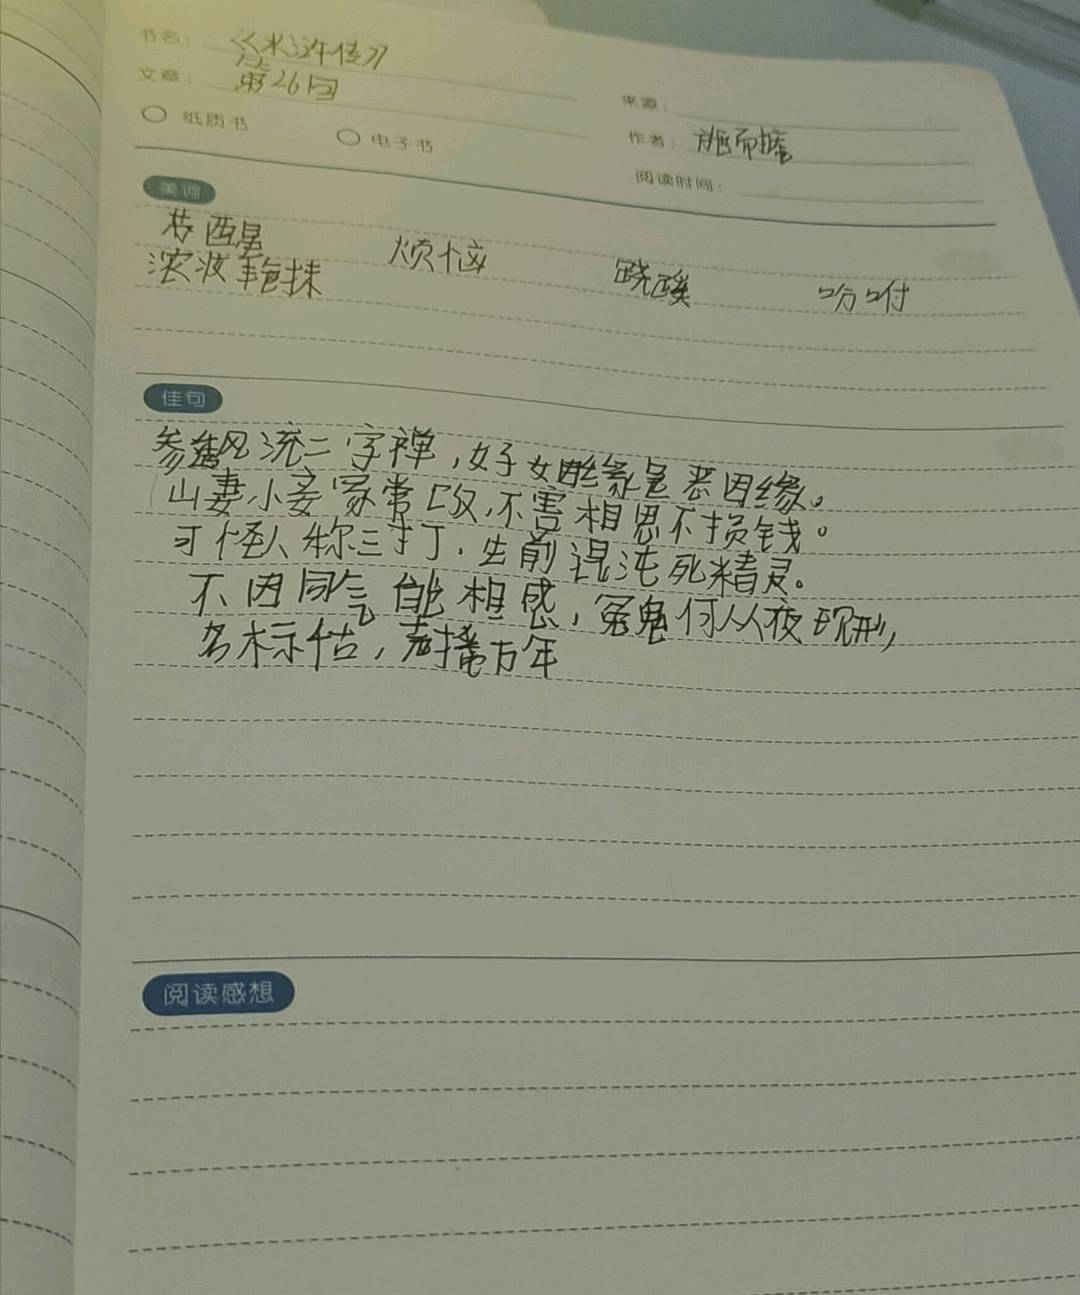 书名： 《水浒传》
文章： 第26回
来源：
纸质书 电子书
作者： 施耐庵
阅读时间：
美词
苏醒 烦恼 跷蹊 吩咐
浓妆艳抹
佳句
参透风流二字禅，好姻缘是恶因缘。
山妻小妾家常饭，不害相思不损钱。
可怪人称三寸丁，生前混沌死精灵。
不因同气能相感，冤鬼何从夜现形，
名标千古，声播万年
阅读感想